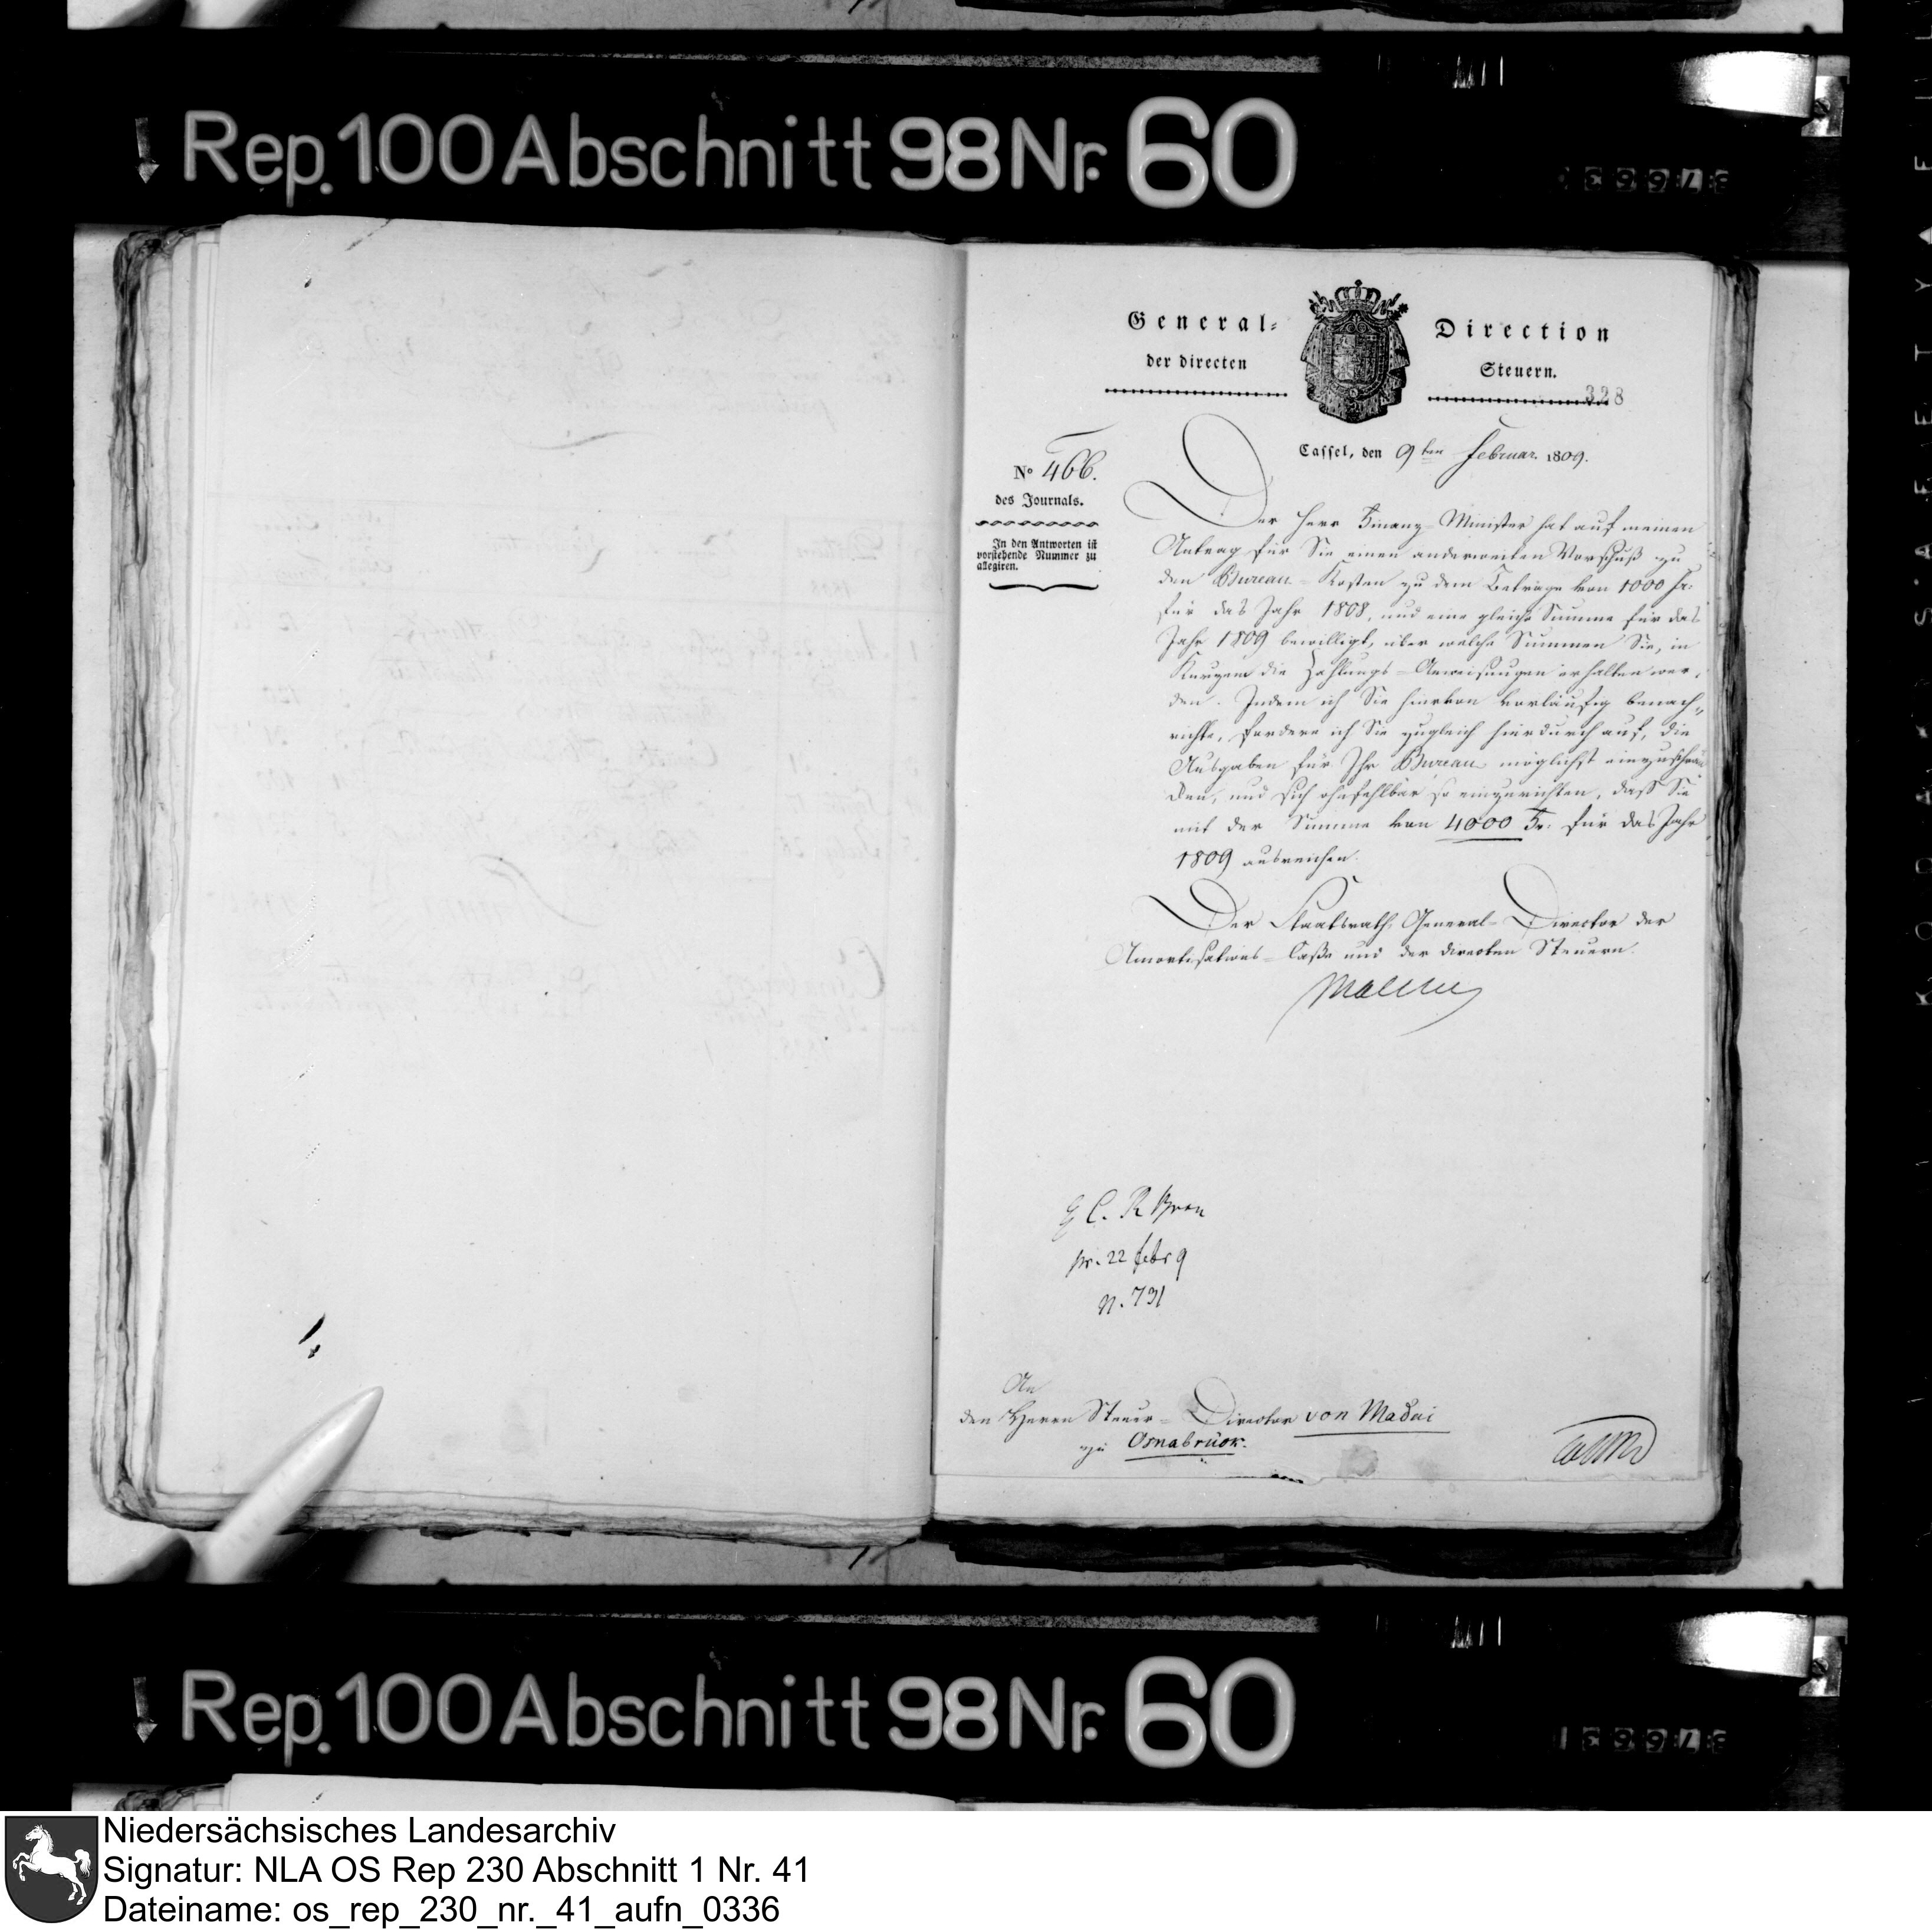 Rep. 100 Abschnitt 98 Nr. 60
General-Direction
der directen Steuern.
328
Cassel, den 9ten Februar. 1809.
No 466.
des Journals.
In den Antworten ist
vorstehende Nummer zu
allegiren.
Der Herr Finanz-Minister hat auf meinen
Antrag für Sie einen anderweiten Vorschuß zu
den Bureau-Kosten zu dem Betrage von 1000 fr.
für das Jahr 1808, und eine gleiche Summe für das
Jahr 1809 bewilligt, über welche Summen Sie, in
Kurzem die Zahlungs-Anweisungen erhalten wer-
den. Indem ich Sie hiervon vorläufig benach-
richte, fordere ich Sie zugleich hierdurch auf, die
Ausgaben für Ihr Bureau möglichst einzuschrän
ken, und sich ohnfehlbar so einzurichten, daß Sie
mit der Summe von 4000 Fr. für das Jahr
1809 ausreichen.
Der Staatsrath, General-Director der
Amortisations-Casse und der directen Steuern.
Malchus
pr. 22 febr 9
n. 731
An
den Herrn Steuer-Director von Madai
zu Osnabrück.
Rep. 100 Abschnitt 98 Nr. 60
Niedersächsisches Landesarchiv
Signatur: NLA OS Rep 230 Abschnitt 1 Nr. 41
Dateiname: os_rep_230_nr._41_aufn_0336